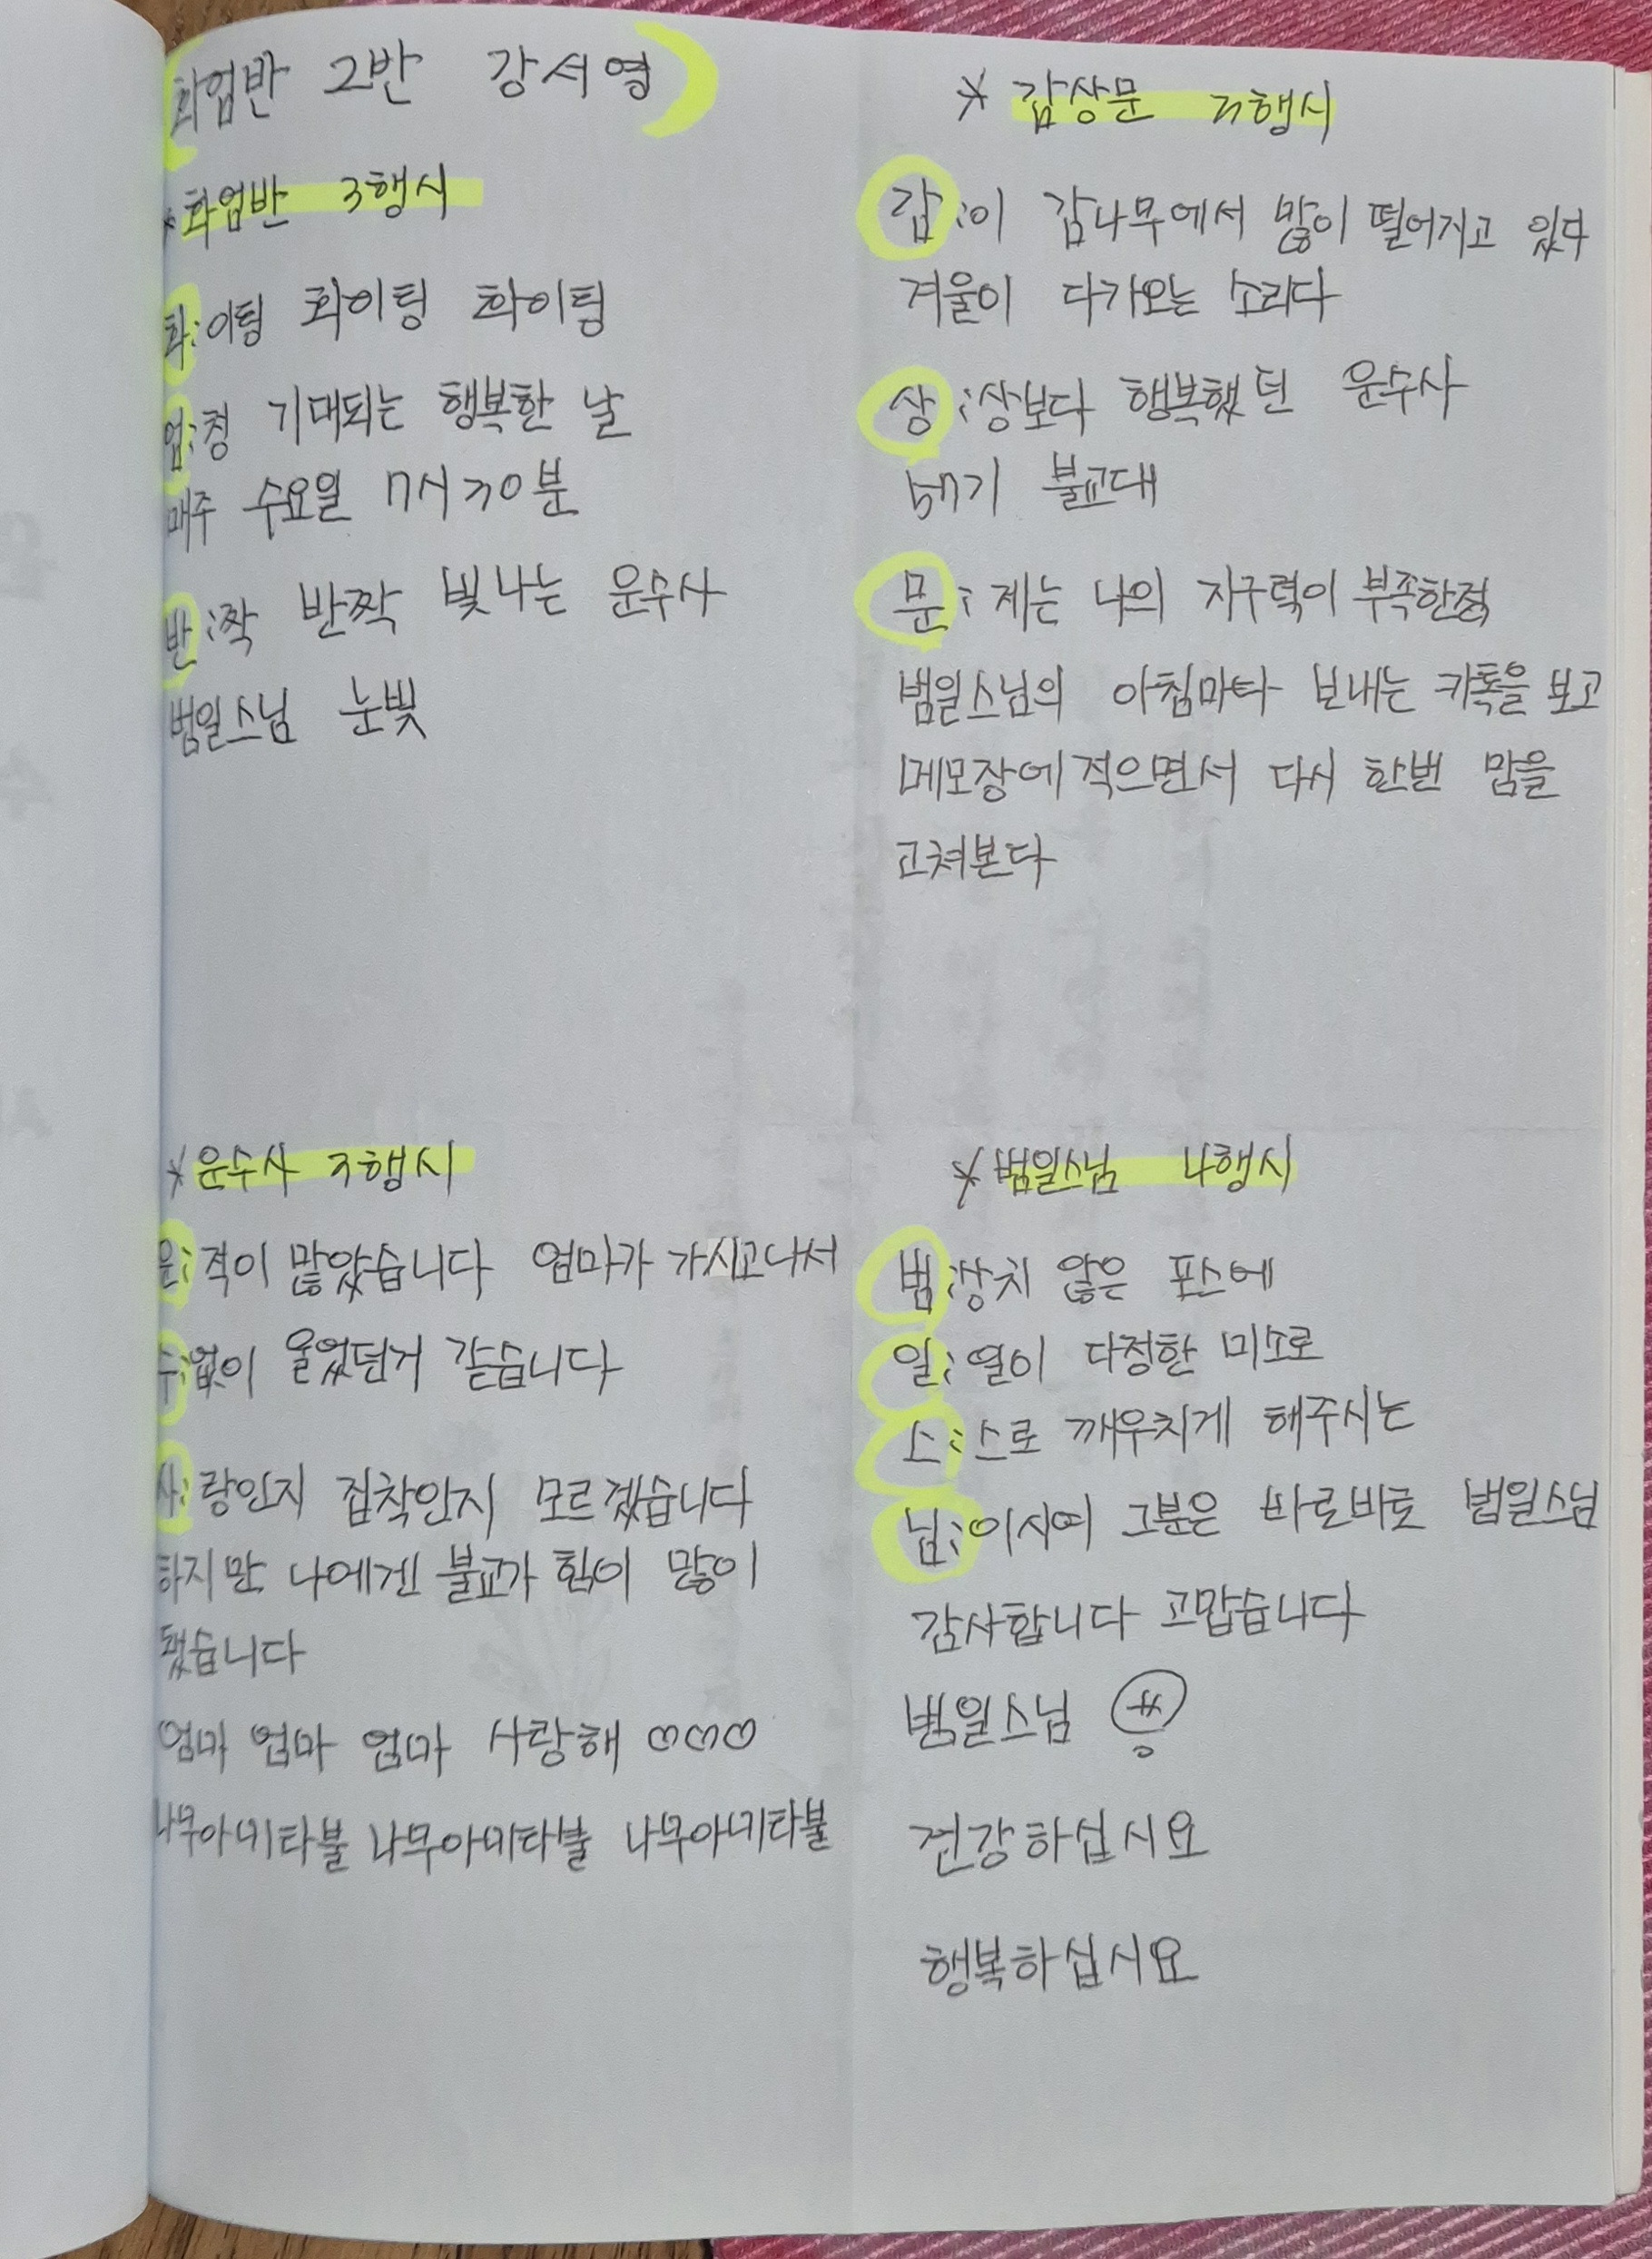 화엄반 2반 강서영
* 화엄반 3행시
화:이팅 화이팅 화이팅
엄:청 기대되는 행복한 날
매주 수요일 7시30분
반:짝 반짝 빛나는 운수사
범일스님 눈빛
* 감상문 3행시
감:이 감나무에서 많이 떨어지고 있다
겨울이 다가오는 소리다
상:상보다 행복했던 운수사
57기 불교대
문:제는 나의 지구력이 부족한점
범일스님의 아침마다 보내는 카톡을 보고
메모장에 적으면서 다시 한번 맘을
고쳐본다
* 운수사 3행시
운:적이 많았습니다 엄마가 가시고나서
수:없이 울었던거 같습니다
사:랑인지 집착인지 모르겠습니다
하지만 나에겐 불교가 힘이 많이
됐습니다
엄마 엄마 엄마 사랑해 ♡♡♡
나무아미타불 나무아미타불 나무아미타불
* 범일스님 4행시
범:상치 않은 포스에
일:열이 다정한 미소로
스:스로 깨우치게 해주시는
님:이시여 그분은 바로바로 범일스님
감사합니다 고맙습니다
범일스님
건강하십시요
행복하십시요